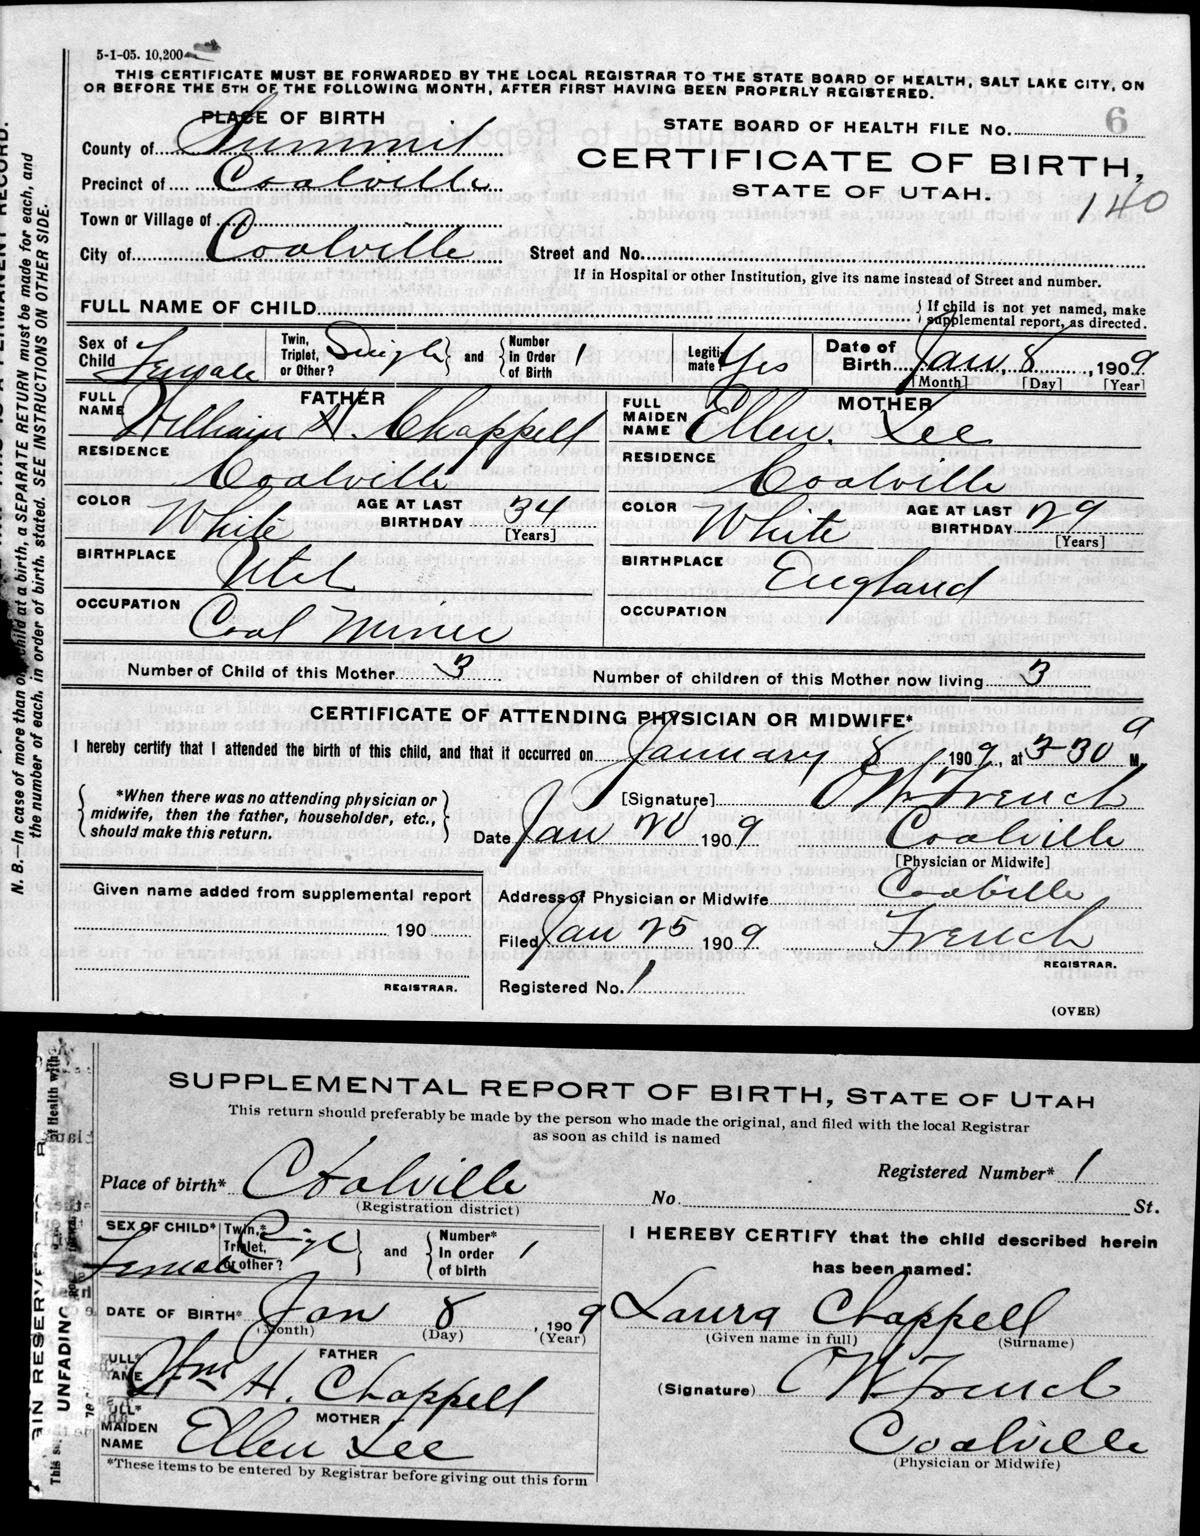 5-1-05. 10,200
THIS CERTIFICATE MUST BE FORWARDED BY THE LOCAL REGISTRAR TO THE STATE BOARD OF HEALTH, SALT LAKE CITY, ON
OR BEFORE THE 5TH OF THE FOLLOWING MONTH, AFTER FIRST HAVING BEEN PROPERLY REGISTERED.
PLACE OF BIRTH
STATE BOARD OF HEALTH FILE No. 6
County of Summit
CERTIFICATE OF BIRTH,
Precinct of Coalville
STATE OF UTAH.
140
Town or Village of
City of Coalville Street and No.
If in Hospital or other Institution, give its name instead of Street and number.
FULL NAME OF CHILD { If child is not yet named, make
supplemental report, as directed.
Sex of Child Female Twin, Triplet, or Other? Single } and { Number In Order of Birth 1 Legiti-mate? Yes Date of Birth Jan. 8, 1909
[Month] [Day] [Year]
FATHER MOTHER
FULL NAME William H. Chappell FULL MAIDEN NAME Ellen Lee
RESIDENCE Coalville RESIDENCE Coalville
COLOR White AGE AT LAST BIRTHDAY 34 [Years] COLOR White AGE AT LAST BIRTHDAY 29 [Years]
BIRTHPLACE Utah BIRTHPLACE England
OCCUPATION Coal Miner OCCUPATION
Number of Child of this Mother 3 Number of children of this Mother now living 3
CERTIFICATE OF ATTENDING PHYSICIAN OR MIDWIFE*
I hereby certify that I attended the birth of this child, and that it occurred on January 8 1909, at 3-30 a M.
{ *When there was no attending physician or
midwife, then the father, householder, etc.,
should make this return. }
[Signature] O W French
Date Jan 20 1909 Coalville
[Physician or Midwife]
Given name added from supplemental report
190
REGISTRAR.
Address of Physician or Midwife Coalville
Filed Jan 25 1909 French
REGISTRAR.
Registered No. 1
(OVER)
N. B.—In case of more than one child at a birth, a SEPARATE RETURN must be made for each, and
the number of each, in order of birth, stated. SEE INSTRUCTIONS ON OTHER SIDE.
SUPPLEMENTAL REPORT OF BIRTH, STATE OF UTAH
This return should preferably be made by the person who made the original, and filed with the local Registrar
as soon as child is named
Registered Number* 1
Place of birth* Coalville No. St.
(Registration district)
SEX OF CHILD* Female Twin,* Triplet, or other? } and { Number* In order of birth 1
I HEREBY CERTIFY that the child described herein
has been named:
DATE OF BIRTH* Jan 8, 1909
(Month) (Day) (Year)
Laura Chappell
(Given name in full) (Surname)
FATHER
FULL* NAME Wm H. Chappell
(Signature) O W French
MOTHER
FULL* MAIDEN NAME Ellen Lee
Coalville
(Physician or Midwife)
*These items to be entered by Registrar before giving out this form
UNFADING